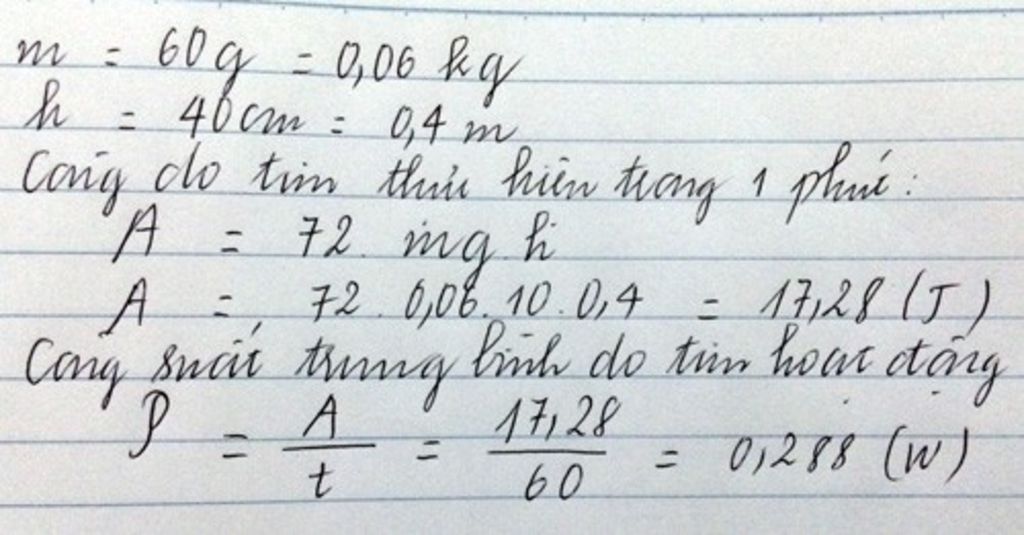 m = 60g = 0,06 kg
h = 40cm = 0,4 m
Công do tim thực hiện trong 1 phút:
A = 72. mg h
A = 72. 0,06. 10. 0,4 = 17,28 (J)
Công suất trung bình do tim hoạt động
P = A/t = 17,28/60 = 0,288 (W)